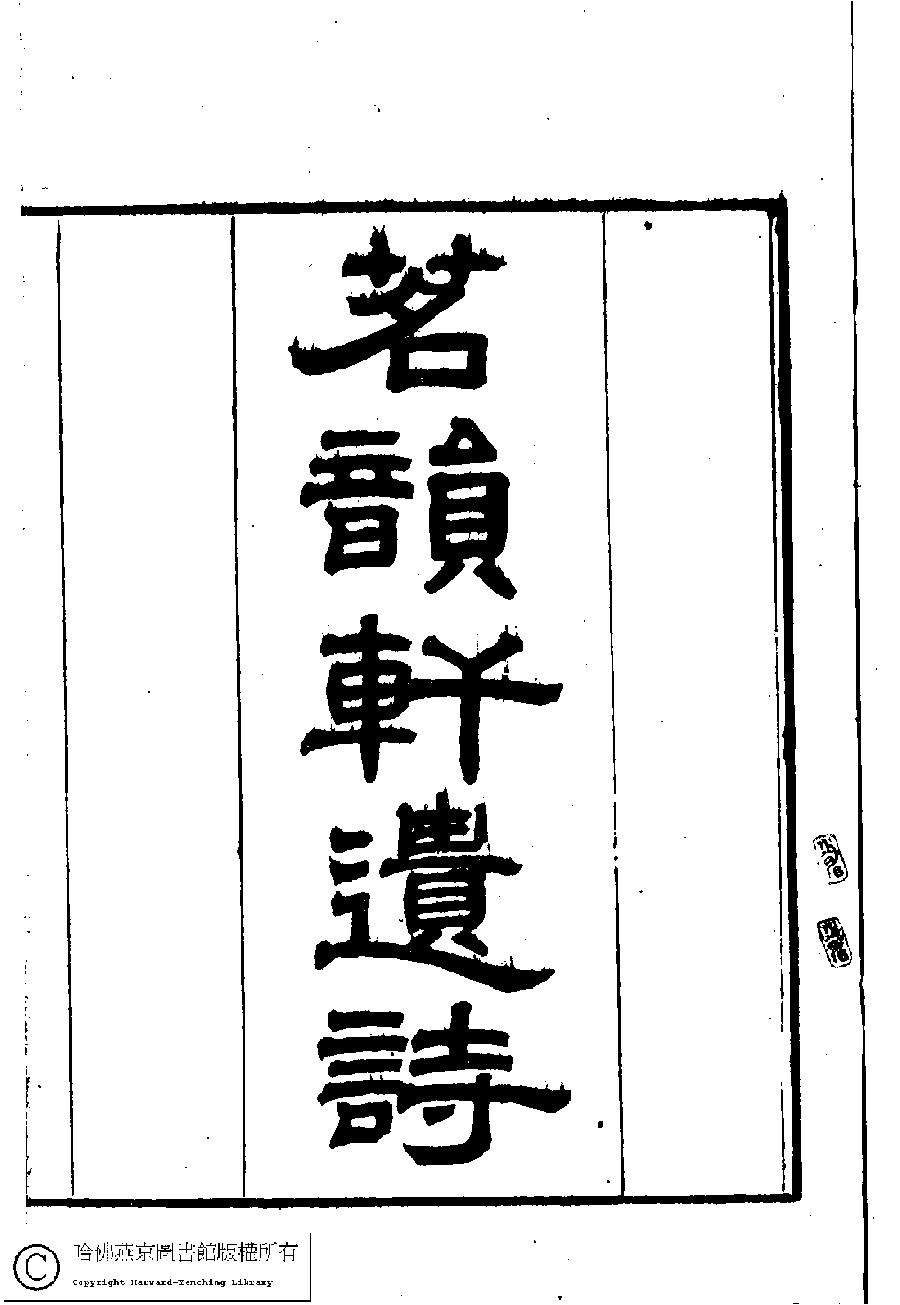 茗韻軒遺詩
哈佛燕京圖書館版權所有
Copyright Harvard-Yenching Library